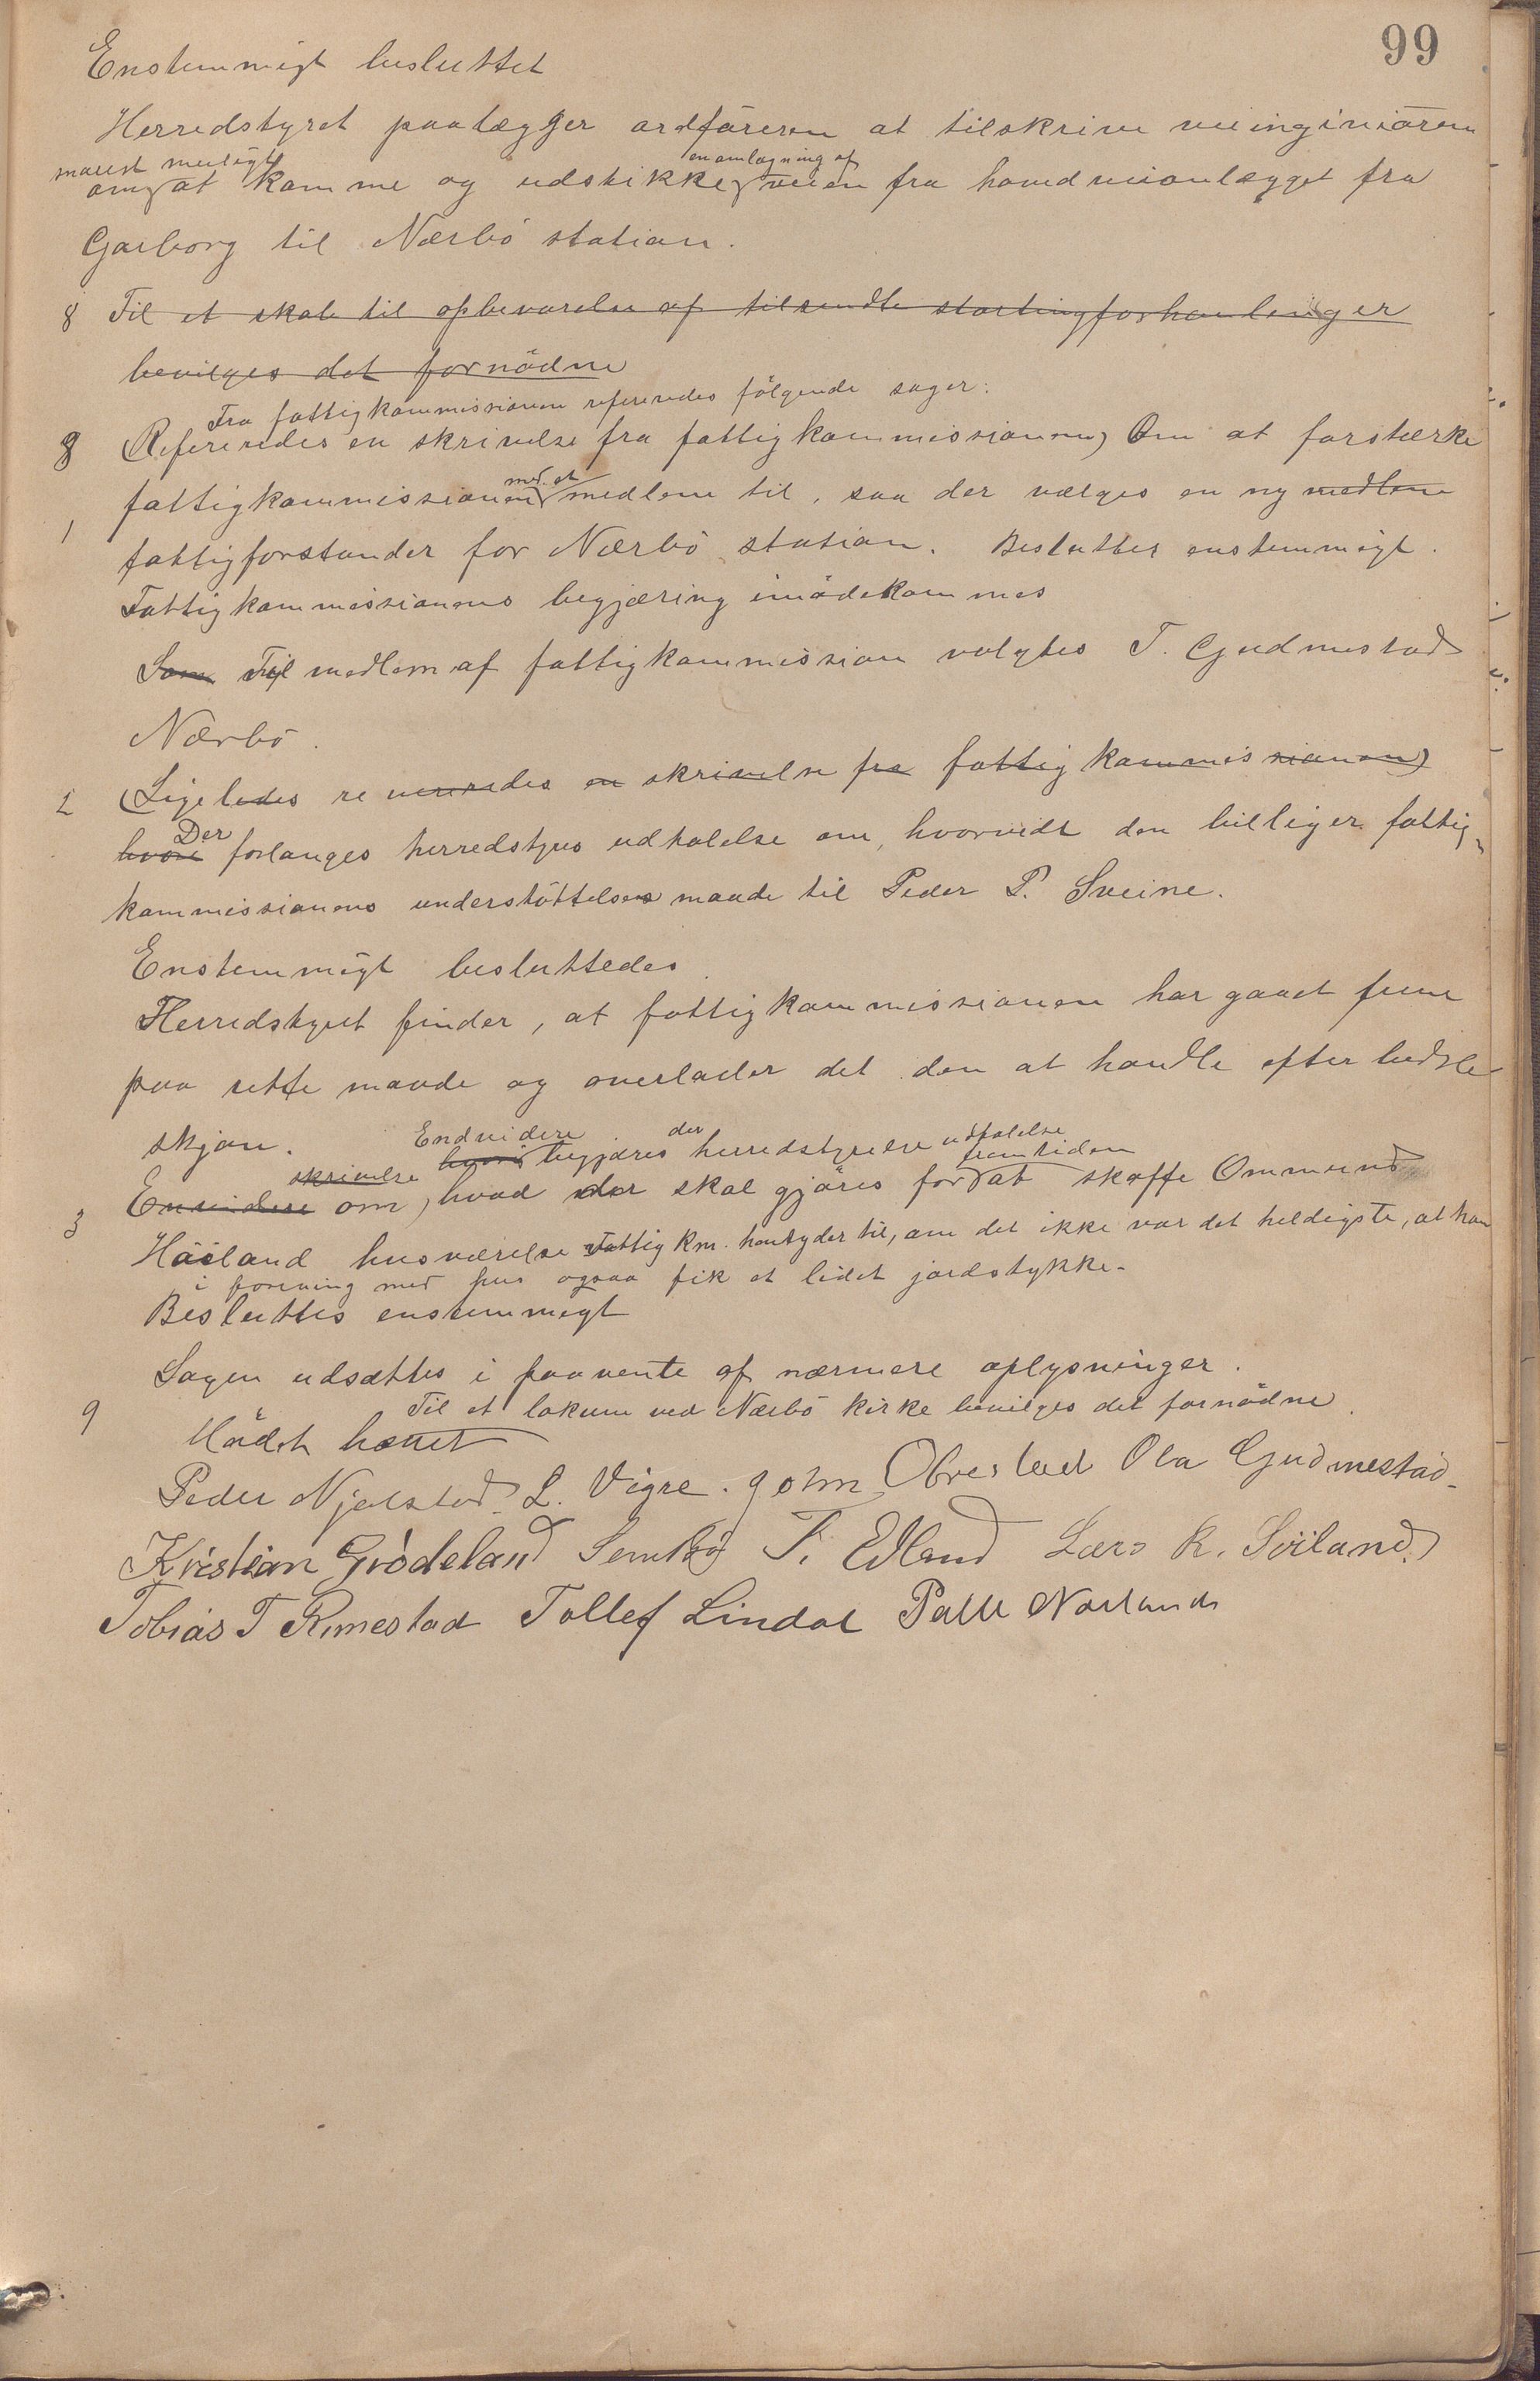 99
Enstemmigt besluttet
Herredstyret paalægger ordføreren at tilskrive veiinginiøren
snarest muligt en omlægning af
om at komme og udstikke veien fra hovedveianlægget fra
Garborg til Nærbö station.
8 Til et skab til opbevarelse af tilsendte stortingforhanlinger
bevilges det fornödne
Fra fattigkommissionen refereredes fölgende sager:
8 (Refereredes en skrivelse fra fattigkommissionen) Om at forstærke
med et
fattigkommissionen medlem til, saa der vælges en ny medlem
1 fattigforstander for Nærbö station. Besluttes enstemmigt.
Fattigkommissionens begjæring imödekommes
Som Til medlem af fattigkommission valgtes T. Gudmestad
Nærbö.
2 (Ligeledes re vereredes en skrivelse fra fattigkommissionen)
Der
hvori forlanges herredstyres udtalelse om, hvorvidt den billiger fattig-
kommissionens understöttelses maade til Peder P. Sveine.
Enstemmigt besluttedes
Herredstyret finder, at fattigkommissionen har gaaet frem
paa rette maade og overlader det den at handle efter bedste
skjøn.
Endvidere der udtalelse
hvori begjæres herredstyrelse
skrivelse fremtiden
3 Envidere om, hvad der skal gjöres for at skaffe Ommund
Häiland husværelse Fattigkm. hentyder til, om det ikke var det heldigste, at han
i forening med hus ogsaa fik et lidet jordstykke.
Besluttes enstemmegt
Sagen udsættes i paavente af nærmere oplysninger.
9 Til et lokum ved Nærbö kirke bevilges det fornödne.
Mödet hævet
Peder Njølstad. L. Vigre. John Obrestad Ola Gudmestad.
Kristian Grödeland Semb T. Edland Lars R. Söiland.
Tobias T Rimestad Tollef Lindal Palle Norland